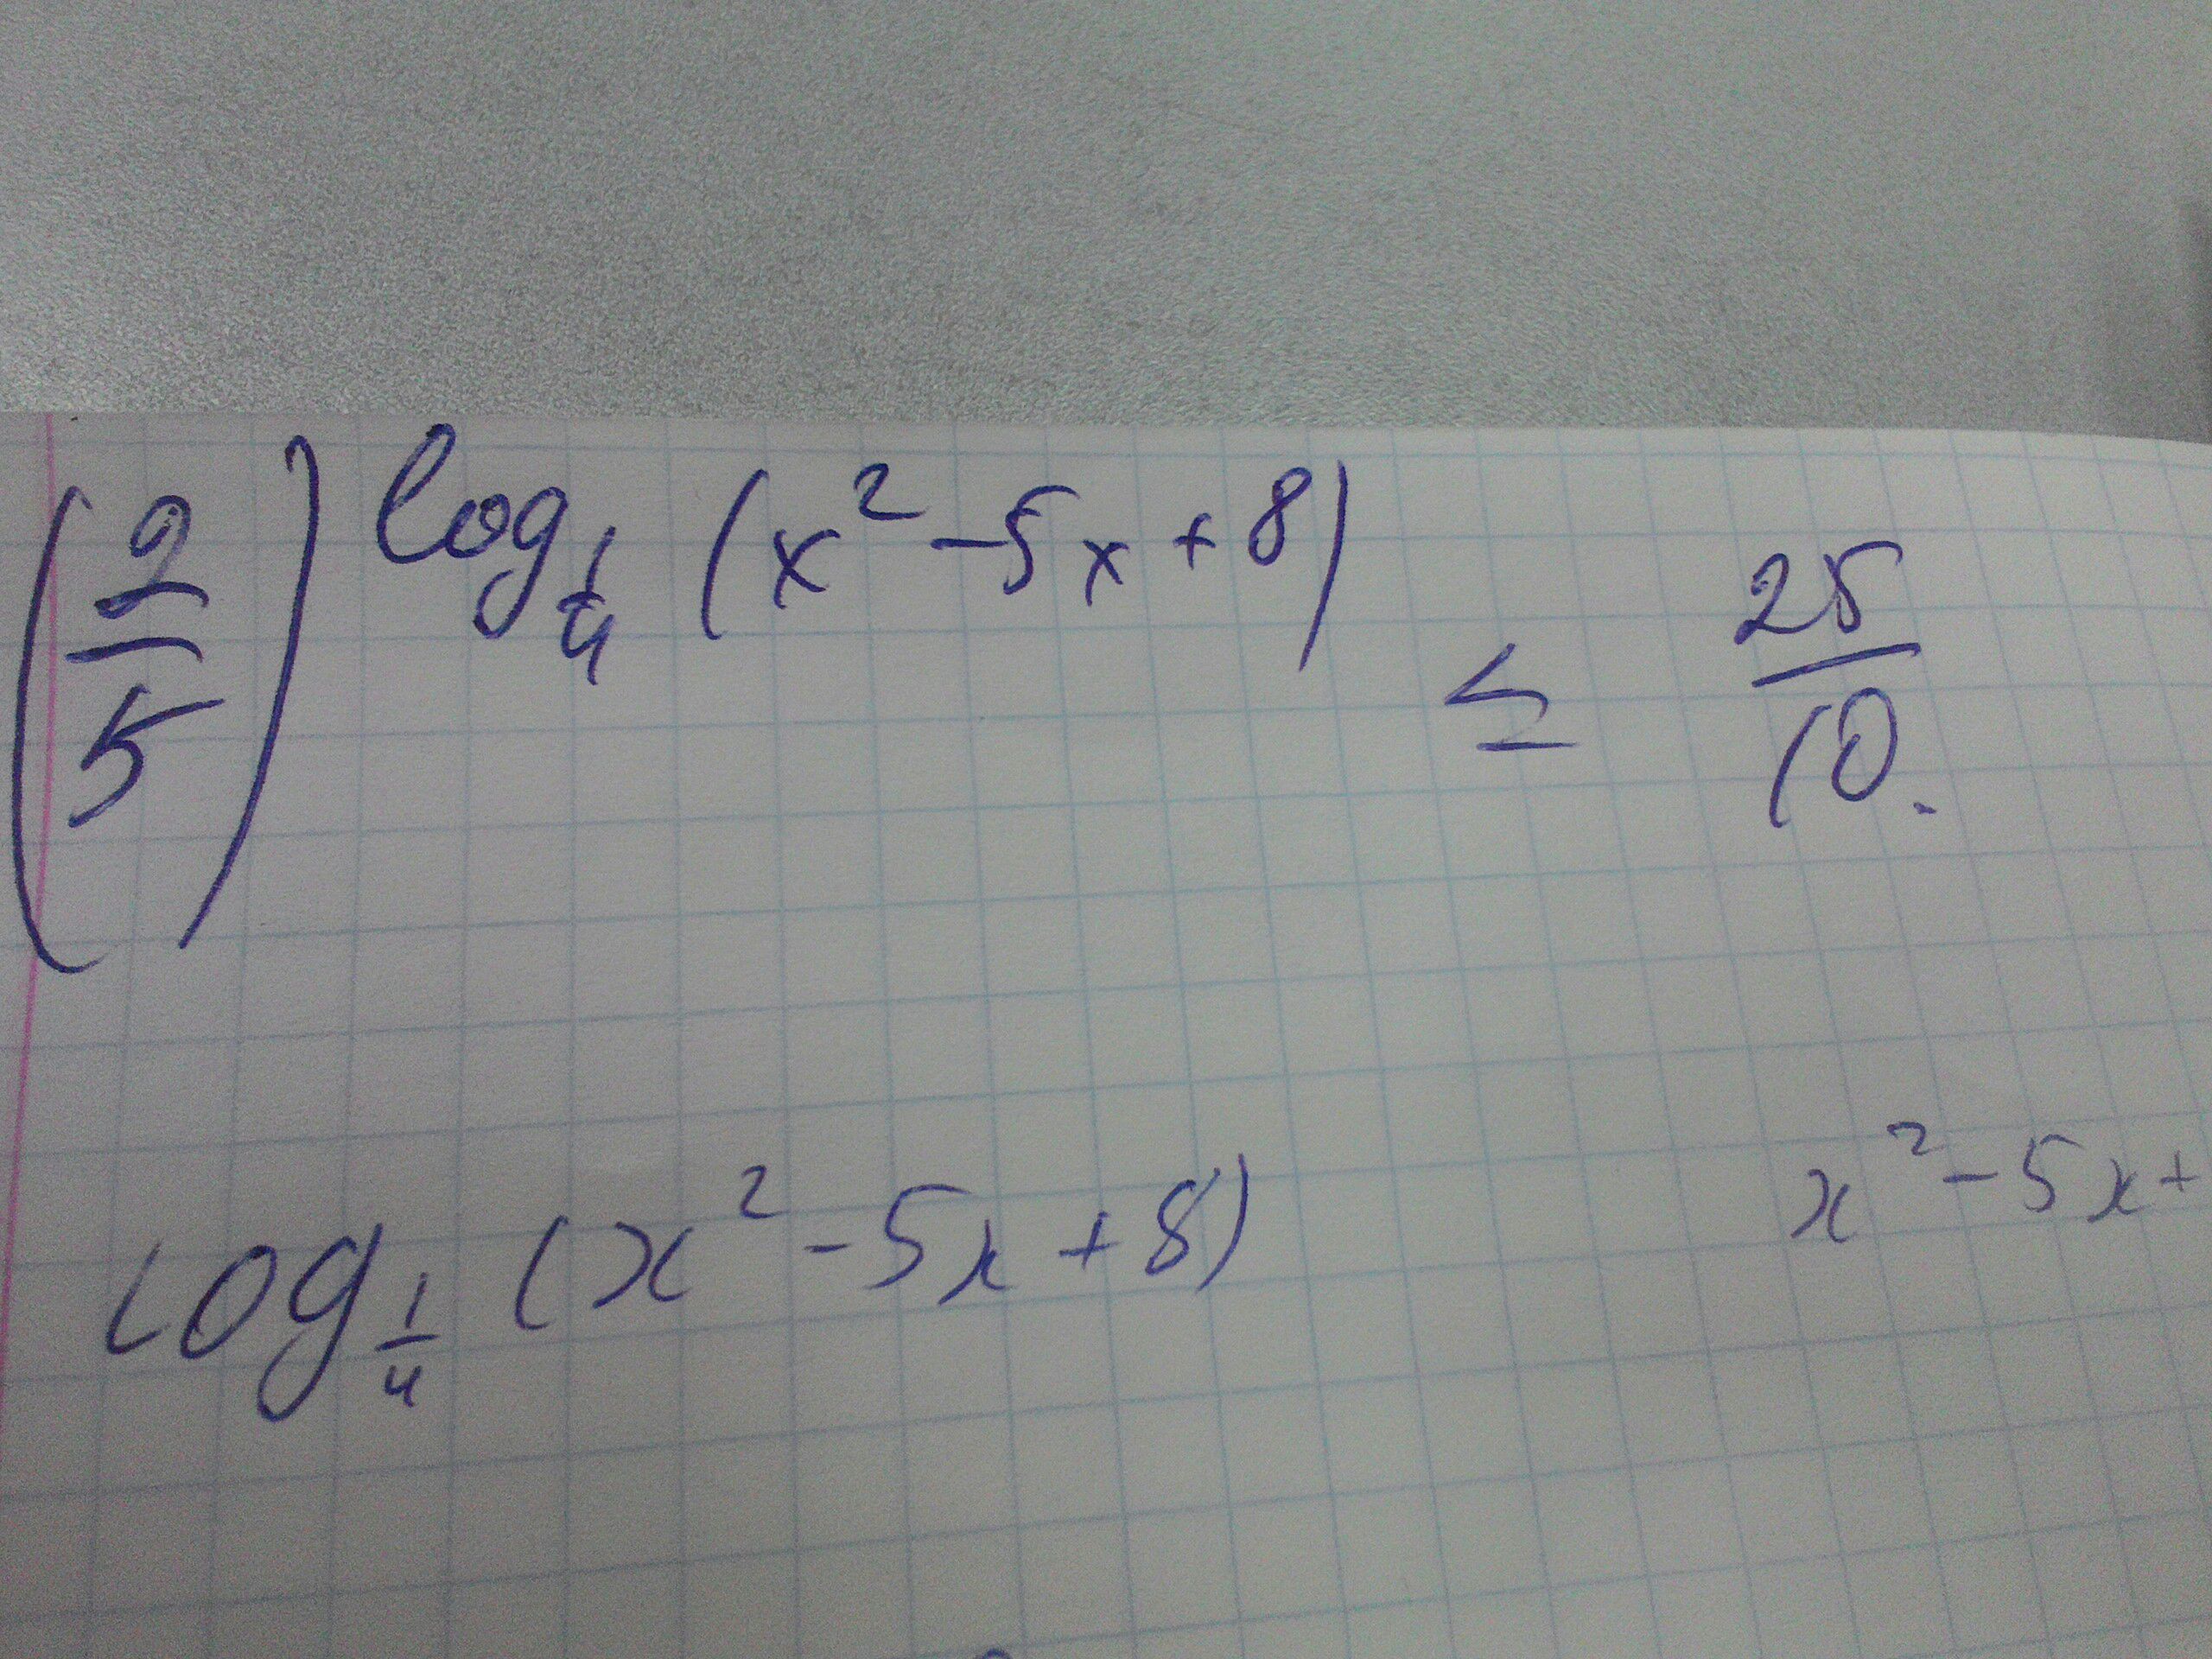 (2/5)^log_{1/4} (x² - 5x + 8) ≤ 25/10.
log_{1/4} (x² - 5x + 8)   x² - 5x +